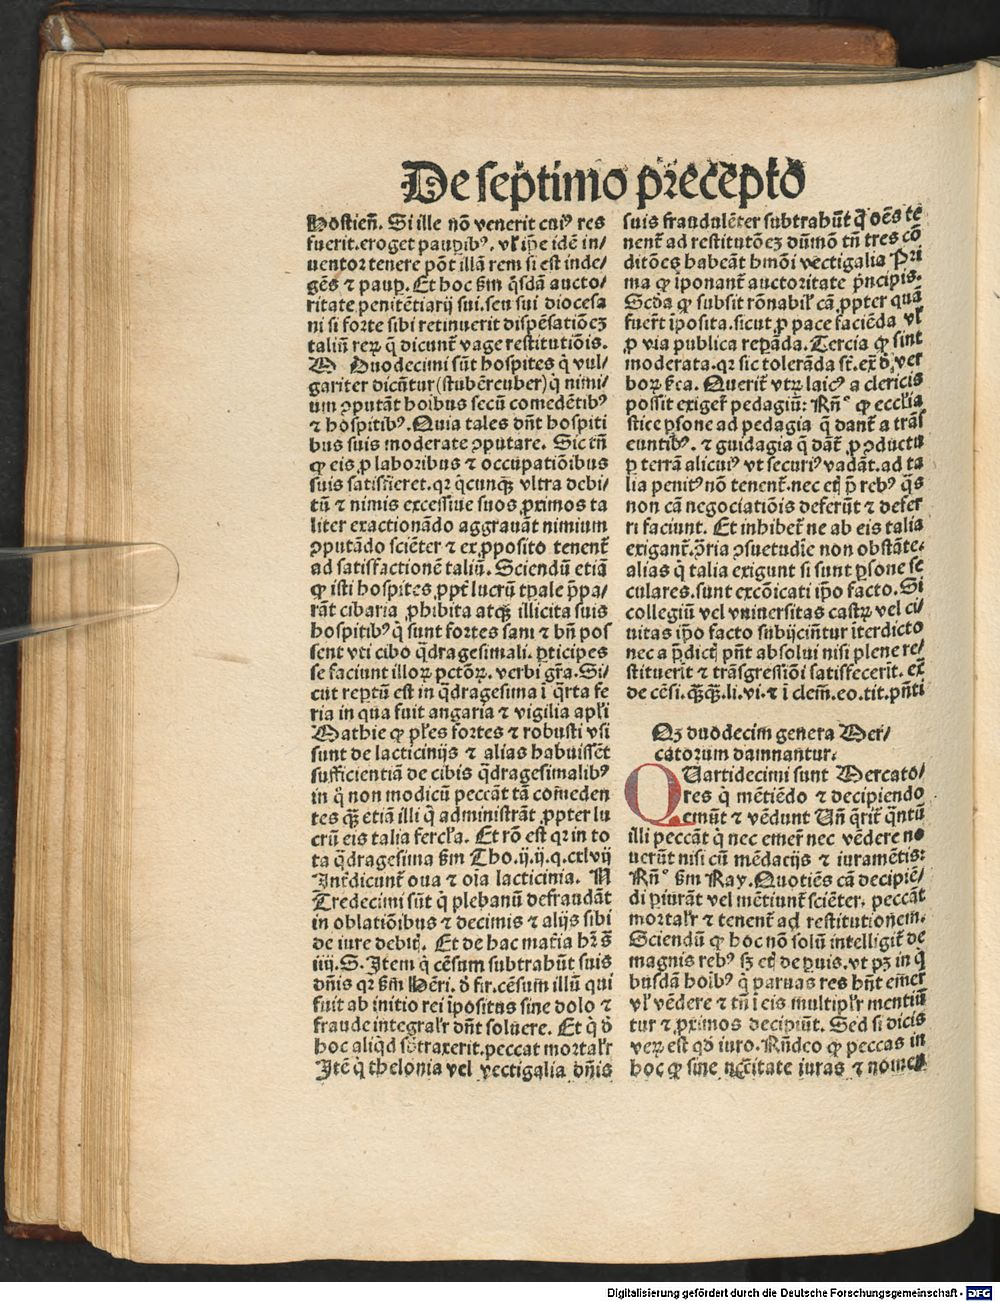 De septimo p̃cepto
Hostieñ. Si ille nõ venerit cuiꝰ res
fuerit.eroget paup̱ibꝰ. vl̃ ip̃e idẽ in⸗
uentor tenere põt illã rem si est inde⸗
gẽs ⁊ paup̱. Et hoc ẜm q̃sdã aucto⸗
ritate penitẽtiarij sui.seu sui diocesa
ni si forte sibi retinuerit dispẽsatiõeꝫ
taliũ reꝝ q̃ dicunt̃ vage restitutiõis.
M Duodecimi sũt hospites q̇ vul⸗
gariter dicũtur (stubẽreuber) q̇ nimi⸗
um ꝯputãt hoĩbus secũ comedẽtibꝰ
⁊ hospitibꝰ. Quia tales dñt hospiti
bus suis moderate ꝯputare. Sic tñ
ꝙ eis ꝓ laboribus ⁊ occupatiõibus
suis satisfieret.qꝛ q̇cunqꝫ vltra debi⸗
tũ ⁊ nimis excessiue suos ꝓximos ta
liter exactionãdo aggrauãt nimium
ꝯputãdo sciẽter ⁊ ex ꝓposito tenent̃
ad satisfactionẽ taliũ. Sciendũ etiã
ꝙ isti hospites ꝓpt̃ lucrũ tp̃ale p̃pa⸗
rãt cibaria ꝓhibita atqꝫ illicita suis
hospitibꝰ q̇ sunt fortes sani ⁊ bñ pos
sent vti cibo q̃dragesimali. ꝑticipes
se faciunt illoꝝ pctõꝝ. verbi gr̃a. Si⸗
cut rep̱tũ est in q̃dragesima ĩ q̃rta fe
ria in qua fuit angaria ⁊ vigilia apl̃i
Mathie ꝙ pl̃es fortes ⁊ robusti vsi
sunt de lacticinijs ⁊ alias habuissẽt
sufficientiã de cibis q̃dragesimalibꝰ
in q̊ non modicũ peccãt tã comeden
tes qꝫ etiã illi q̇ administrãt ꝓpter lu
crũ eis talia fercl̃a. Et rõ est qꝛ in to
ta q̃dragesima ẜm Tho.ij.ij.q.cxlvij
Inťdicunt̃ oua ⁊ oĩa lacticinia. N
Tredecimi sũt q̇ plebanũ defraudãt
in oblatiõibus ⁊ decimis ⁊ alijs sibi
de iure debiť. Et de hac maťia hr̃ s̃
iiij.S. Item q̇ cẽsum subtrahũt suis
dñis qꝛ ẜm Hẽri. ď fir.cẽsum illũ qui
fuit ab initio rei ĩpositus sine dolo ⁊
fraude integralr̃ dñt soluere. Et q̇ ď
hoc aliq̇d s̃btraxerit.peccat mortalr̃
Itẽ q̇ thelonia vel vectigalia dñis
suis fraudulẽter subtrahũt q̇ oẽs te
nent̃ ad restitutõeꝫ dũmõ tñ tres cõ
ditões habeãt hmõi vectigalia Pri
ma ꝙ ĩponant̃ auctoritate p̃ncipis.
Scd̃a ꝙ subsit rõnabil̃ cã ꝓpter quã
fueřt ĩposita.sicut ꝓ pace faciẽda vl̃
ꝓ via publica rep̱ãda. Tercia ꝙ sint
moderata.qꝛ sic tolerãda st̃. ex̃ ď ver
boꝝ ẜ̃ca. Querit̃ vtꝝ laicꝰ a clericis
possit exiger̃ pedagiũ: Rñ° ꝙ eccl̃ia
stice ꝑsone ad pedagia q̃ dant̃ a trãs
euntibꝰ. ⁊ guidagia q̃ dãt̃ ꝓ ꝯductu
ꝑ terrã alicuiꝰ vt securiꝰ vadãt.ad ta
lia penitꝰ nõ tenent̃.nec eť p̃ rebꝰ q̃s
non cã negociatiõis deferũt ⁊ defer
ri faciunt. Et inhibet̃ ne ab eis talia
exigant̃.ꝯ̃ria ꝯsuetudĩe non obstãte.
alias q̇ talia exigunt si sunt ꝑsone se
culares.sunt excõicati ip̃o facto. Si
collegiũ vel vniuersitas castꝝ vel ci⸗
uitas ip̃o facto subijciũtur ĩterdicto
nec a p̃dicť pñt absolui nisi plene re⸗
stituerit ⁊ trãsgressiõi satisfecerit. ex̃
de cẽsi.qꝫqꝫ.li.vi.⁊ ĩ clem̃.eo.tit.pñti
Qꝫ duodecim genera Mer⸗
catorum damnantur.
QUartidecimi sunt Mercato⸗
res q̇ mẽtiẽdo ⁊ decipiendo
emũt ⁊ vẽdunt Uñ q̇rit̃ q̃ntũ
illi peccãt q̇ nec emer̃ nec vẽdere no
uerũt nisi cũ mẽdacijs ⁊ iuramẽtis:
Rñ° ẜm Ray. Quotiẽs cã decipiẽ⸗
di ꝑiurãt vel mẽtiunt̃ sciẽter. peccãt
mortalr̃ ⁊ tenent̃ ad restitutionem.
Sciendũ ꝙ hoc nõ solũ intelligit̃ de
magnis rebꝰ sꝫ eť de ꝑuis.vt pꝫ in q̇
busdã hoĩbꝰ q̇ paruas res hñt emer̃
vl̃ vẽdere ⁊ tñ ĩ eis multiplr̃ mentiũ
tur ⁊ ꝓximos decipiũt. Sed si dicis
veꝝ est qď iuro. Rñdeo ꝙ peccas in
hoc ꝙ sine nc̃citate iuras ⁊ nomen
Digitalisierung gefördert durch die Deutsche Forschungsgemeinschaft - DFG